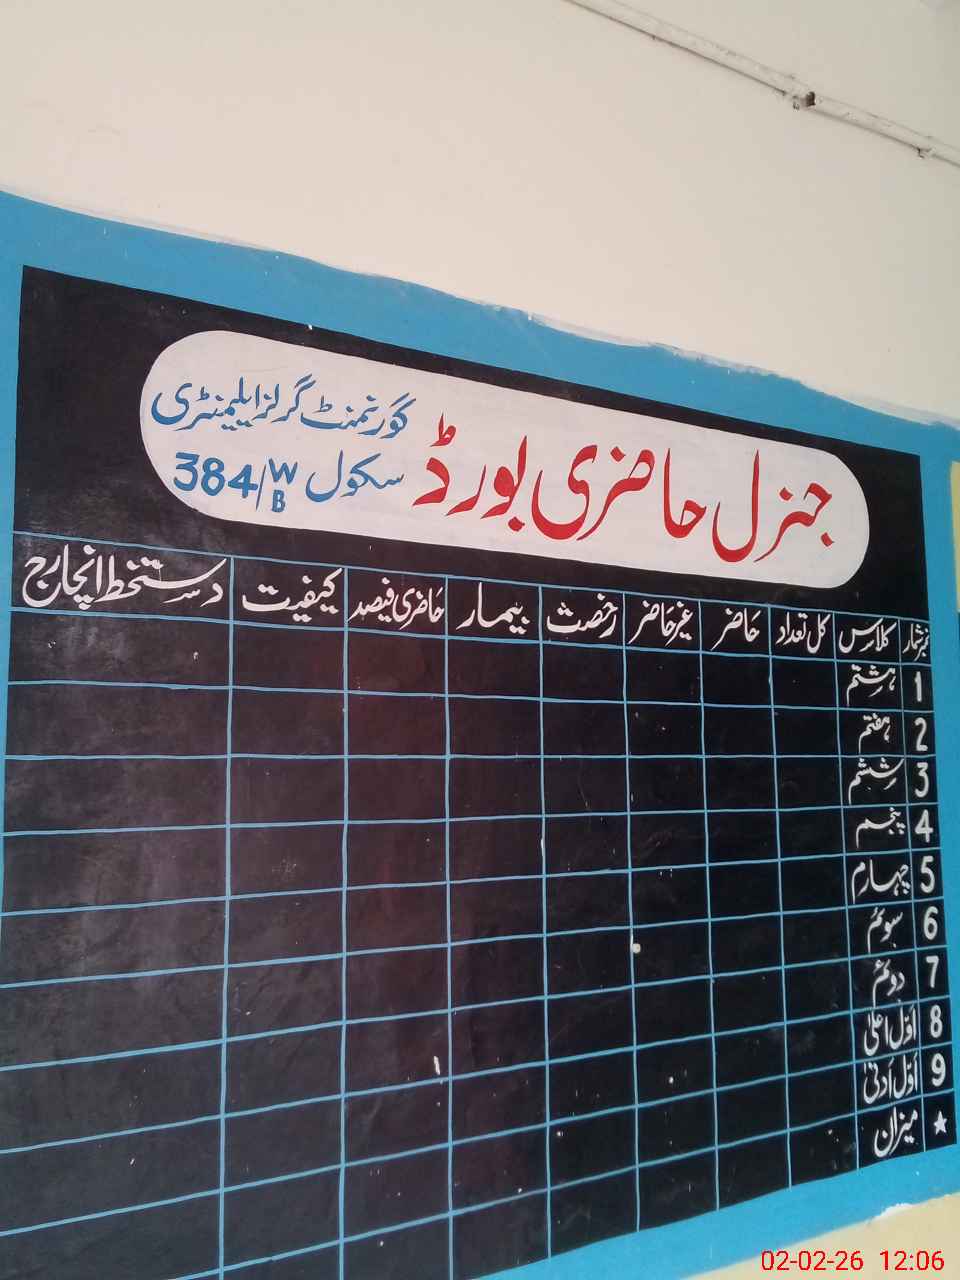 جنرل حاضری بورڈ
گورنمنٹ گرلز ایلیمنٹری
سکول 384/WB
نمبر شمار کلاس کل تعداد حاضر غیر حاضر رخصت بیمار حاضری فیصد کیفیت دستخط انچارج
1 ہشتم
2 ہفتم
3 ششم
4 پنجم
5 چہارم
6 سوئم
7 دوئم
8 اوّل اعلیٰ
9 اوّل ادنیٰ
★ میزان
02-02-26 12:06